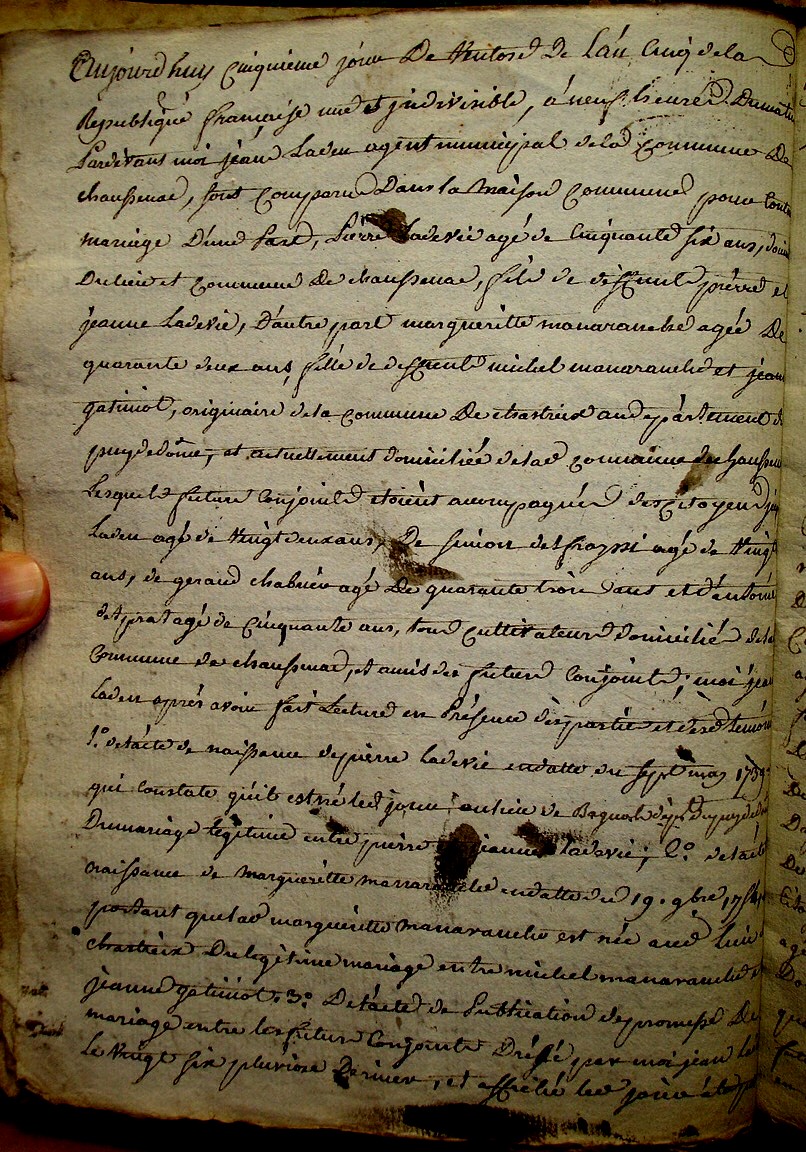 Aujourdhuy Cinquieme jour De Ventose De L'an Cinq de la
Republique française une et jndivisible, á neuf heures Dumatin
Pardevant moi jean Ladeu agent municipal de la Commune De
chaussenac, sont Comparu Dans la maison Commune pour
mariage D'une Part, Pierre Ladevie agé de Cinquante six ans,
Dulieu et Commune De chaussenac, fils de deffunt pierre et
jeanne Ladevie, D'autre part margueritte manaranche agée De
quarante deux ans, fille de deffunt michel manaranche et jeanne
gatiniol, originaire de la Commune De chastreix au departement
puydedome, et actuellement domiciliée de lad Commune de
Lesquels futurs Conjoints etoient accompagnés des Citoyens
Ladeu agé de Vingt deux ans, De simon delfrayssi agé de Vingt
ans, de geraud chabrier agé De quarante trois ans et d'antoine
delprat agé de Cinquante ans, tous Cultivateurs domiciliés de la
Commune de chaussenac, et amis des futurs Conjoints; moi jean
Ladeu aprés avoir fait Lecture en Présence des parties et des temoins
1.º de l'acte de naissance de pierre Ladevie endatte du sept may
qui Constate qu'il est né led jour au lieu de
Du mariage legitime entre pierre jeanne Ladevie; 2.º de l'acte
naissance de Margueritte manaranche endatte du 19. 9bre
portant que lad margueritte manaranche est née aud lieu
chastreix Du legitime mariage entre michel manaranche
jeanne gatiniol 3.º De l'acte de Publication de promesse De
mariage entre les futurs Conjoints Dréssé par moi jean
Le Vingt six pluviose Dernier, et affiché led jour